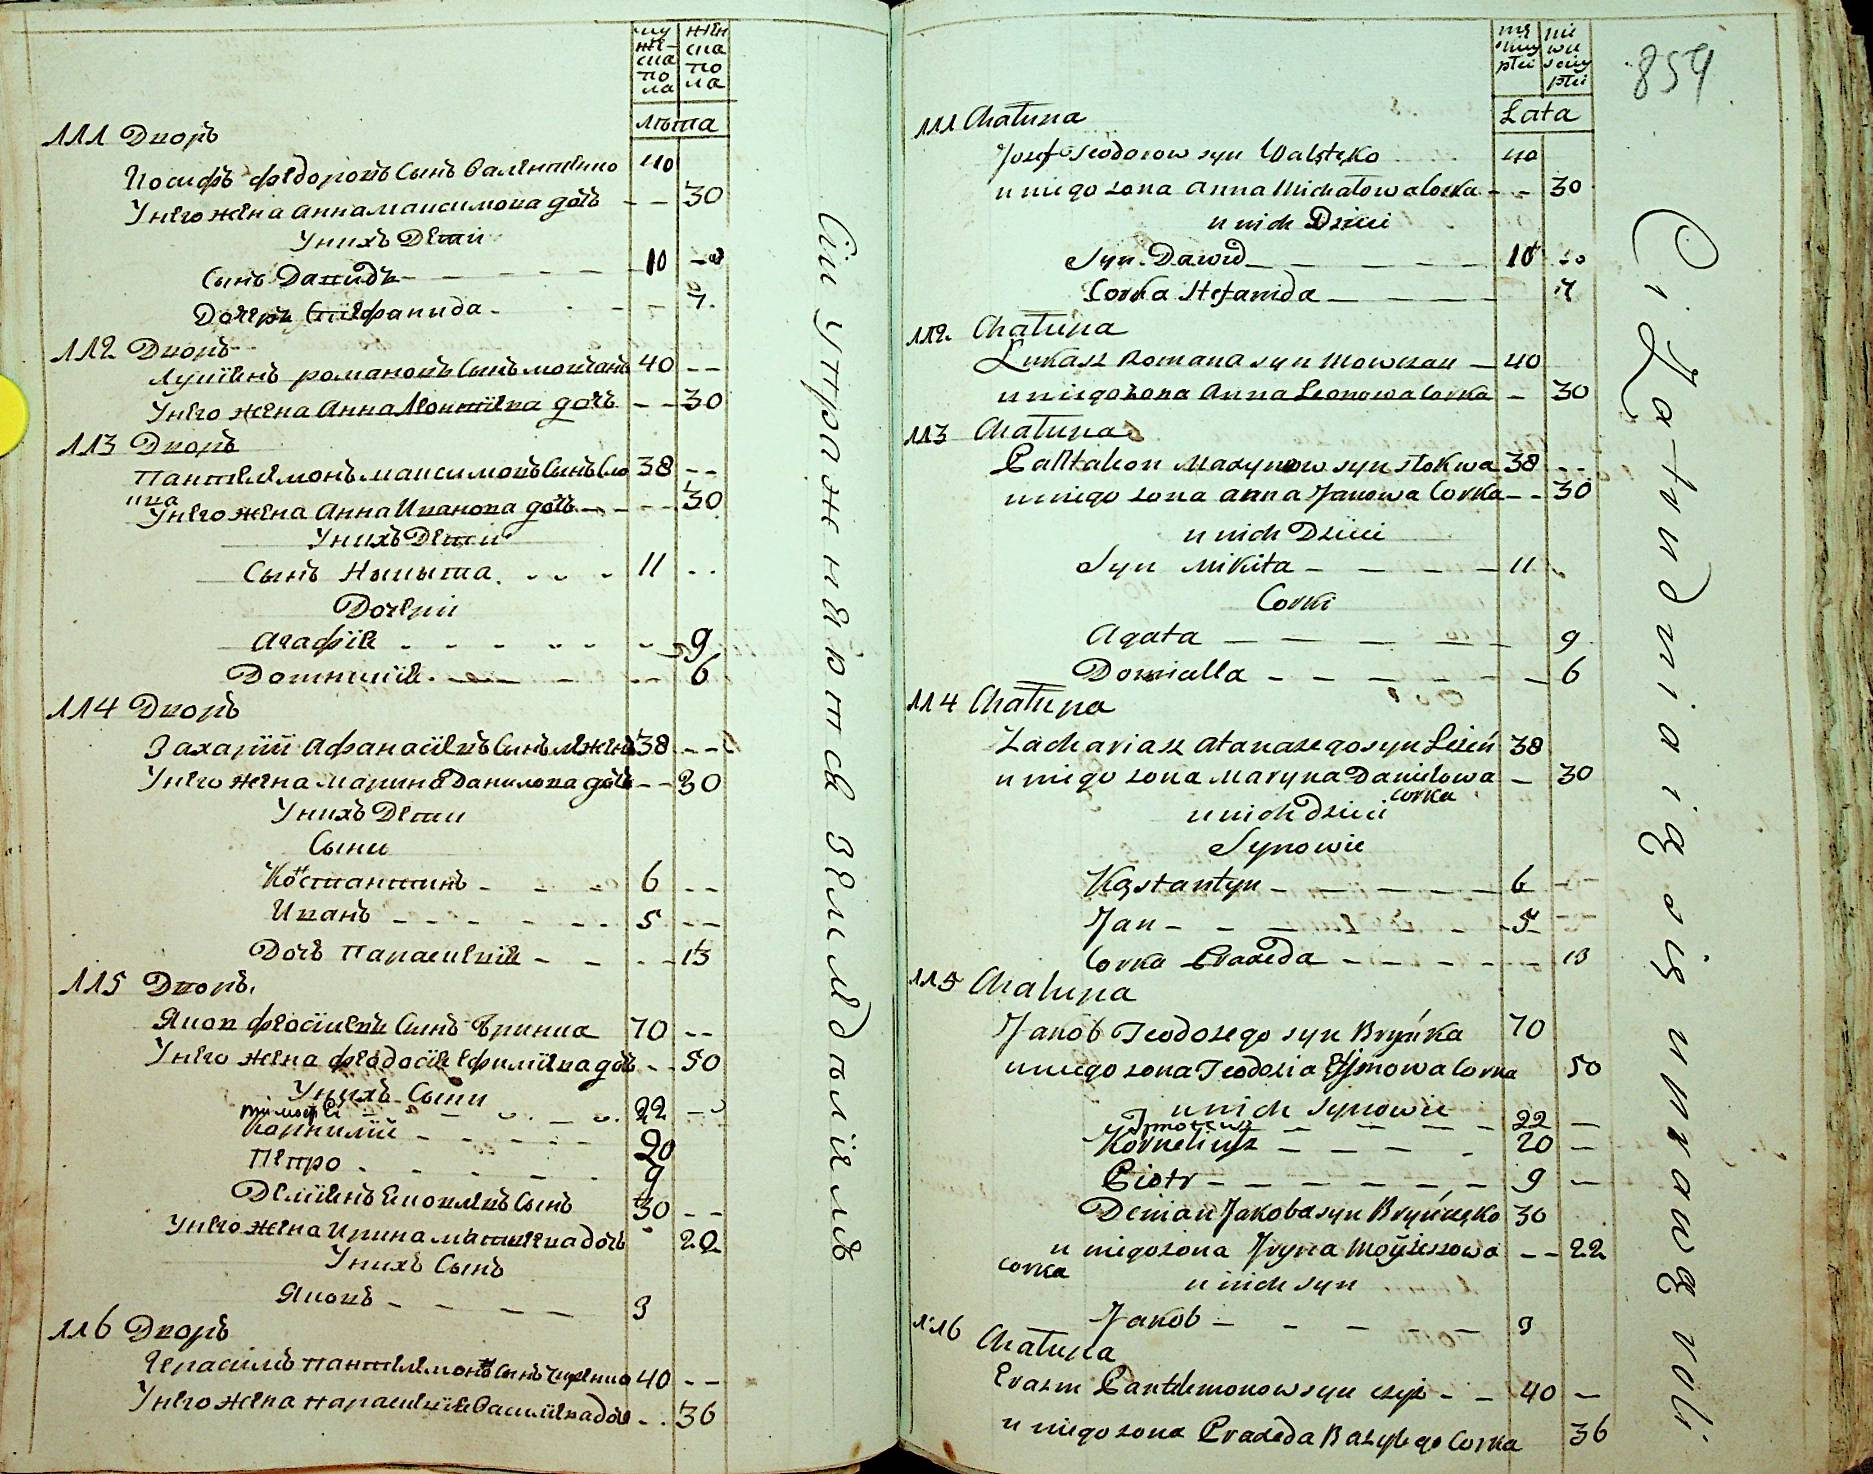 му
же-
ска
по
ла
жен
ска
по
ла
лѣта
111 Дворъ
Иосифъ Федоровъ Сынъ Валентенко 40
У него жена Анна Максимова дочь - - 30
У нихъ Дети
Сынъ Давидъ 10 --
Дочеръ Стефанида - 7
112 Дворъ
Лукіянъ Романовъ Сынъ Мовчанъ 40 --
У него жена Анна Леонтіева дочь - - 30
113 Дворъ
Пантелемонъ Максимовъ Сынъ Сло 38 --
У него жена Анна Иванова дочь - - 30
У нихъ Дети
Сынъ Никита 11 --
Дочери
Агафія - - 9
6
114 Дворъ
Захарій Афанасіевъ Сынъ 38 --
У него жена Марина Данилова дочь - - 30
У нихъ Дети
Сыни
Костантинъ - 6 --
Иванъ - 5 --
Дочь Параскевія - - 13
115 Дворъ
Яков Феосіевъ Сынъ Бринка 70 --
У него жена Феодосія Ефиміева дочь - - 50
У нихъ Сыни
Тимофей 22 --
Корнилій 20
Петро 9
Деміянъ Яковлевъ Сынъ 30 --
У него жена Ирина дочь 22
У нихъ Сынъ
Яковъ - 3
116 Дворъ
Герасимъ Пантелемоновъ Сынъ 40 --
У него жена Параскевія Василіева дочь - - 36
Сіи упражнеются земледѣліемъ
mę
skiey
płci
nie
wie
sciey
płci
Lata
859
111 Chałupa
Jozef Teodorow syn Walęteko 40
u niego zona Anna Michałowa Corka - - 30
u nich Dzieci
Syn Dawid 10 --
Corka Stefanida 7
112 Chałupa
Lukasz Romana syn Mowczan 40
u niego zona Anna Leonowa Corka - 30
113 Chałupa
Pantalion syn Słokwa 38 --
u niego zona Anna Janowa Corka - - 30
u nich Dzieci
Syn Mikita - 11 -
Corki
Agata 9
6
114 Chałupa
Zachariasz Atanazego syn Lezeń 38
u niego zona Maryna Daniełowa - 30
corka
u nich dzieci
Synowie
Kąstantyn - 6 --
Jan - 5 --
Corka Praxeda - 13
115 Chałupa
Jakob Teodozego syn Bryńka 70
u niego zona Teodozia Efimowa Corka 50
u nich synowie
Tymoteusz 22 -
Korneliusz 20 -
Piotr - 9 -
Demian Jakoba syn Bryńczęko 30
u niego zona Iryna Moyżeszowa - - 22
corka
u nich syn
Jakob - 3
116
Chałupa
Erazm Pantelemonow syn czyż - - 40 -
u niego zona Praxeda Bazylego Corka 36
Ci Zatrudniaią się uprawą roli